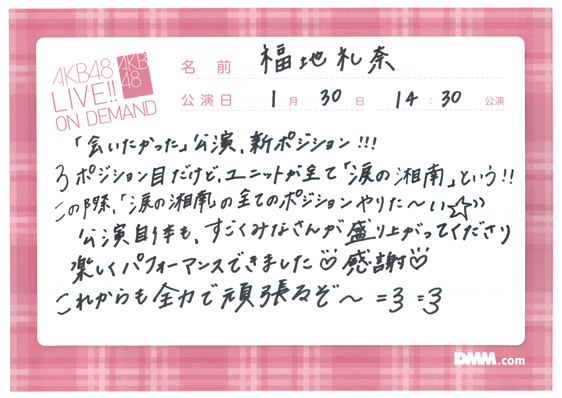 AKB48
LIVE!!
ON DEMAND
AKB
48
名前 福地礼奈
公演日 1月 30日 14:30 公演
「会いたかった」公演、新ポジション!!!
3ポジション目だけど、ユニットが全て「涙の湘南」という!!
この際、「涙の湘南」の全てのポジションやりた〜い☆))
公演自体も、すごくみなさんが盛り上がってくださり
楽しくパフォーマンスできました♡感謝♡
これからも全力で頑張るぞ〜 =3 =3
DMM.com